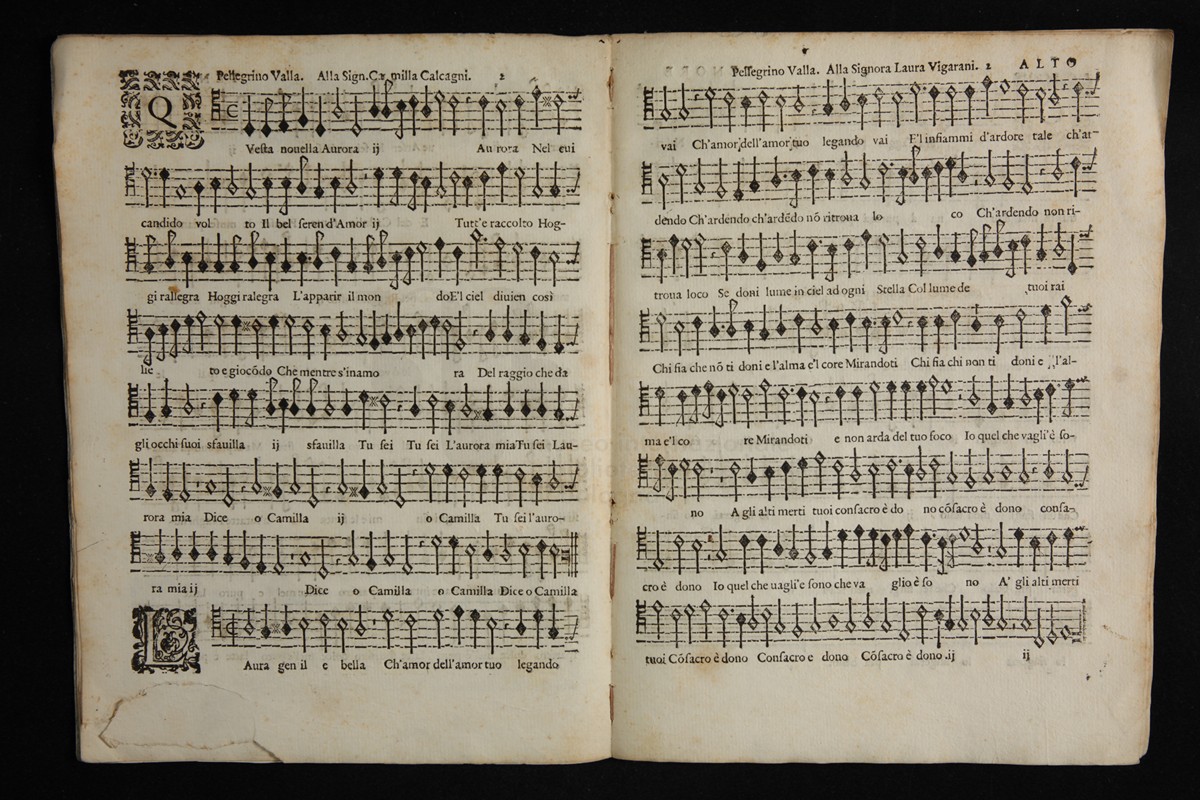 Pellegrino Valla. Alla Sign. Camilla Calcagni. 2
Q
Vesta nouella Aurora ij Aurora Nel cui
candido vol to Il bel seren d'Amor ij Tutt'e raccolto Hog-
gi rallegra Hoggi ralegra L'apparir il mon do E'l ciel diuien così
lie to e giocõdo Che mentre s'inamo ra Del raggio che da
gli occhi suoi sfauilla ij sfauilla Tu sei Tu sei L'aurora mia Tu sei Lau-
rora mia Dice o Camilla ij o Camilla Tu sei l'auro-
ra mia ij Dice o Camilla o Camilla Dice o Camilla
L
Aura gen il e bella Ch'amor dell'amor tuo legando
Pellegrino Valla. Alla Signora Laura Vigarani. 2 ALTO
vai Ch'amor dell'amor tuo legando vai E'l infiammi d'ardore tale ch'ar-
dendo Ch'ardendo ch'ardẽdo nõ ritroua lo co Ch'ardendo non ri-
troua loco Se doni lume in ciel ad ogni Stella Col lume de tuoi rai
Chi fia che nõ ti doni e l'alma e'l core Mirandoti Chi fia chi non ti doni e l'al-
ma e'l co re Mirandoti e non arda del tuo foco Io quel che vagli'è so-
no A gli alti merti tuoi consacro è do no cõsacro è dono consa-
cro è dono Io quel che uagli'e sono che va glio è so no A' gli alti merti
tuoi Cõsacro è dono Consacro e dono Cõsacro è dono .ij ij